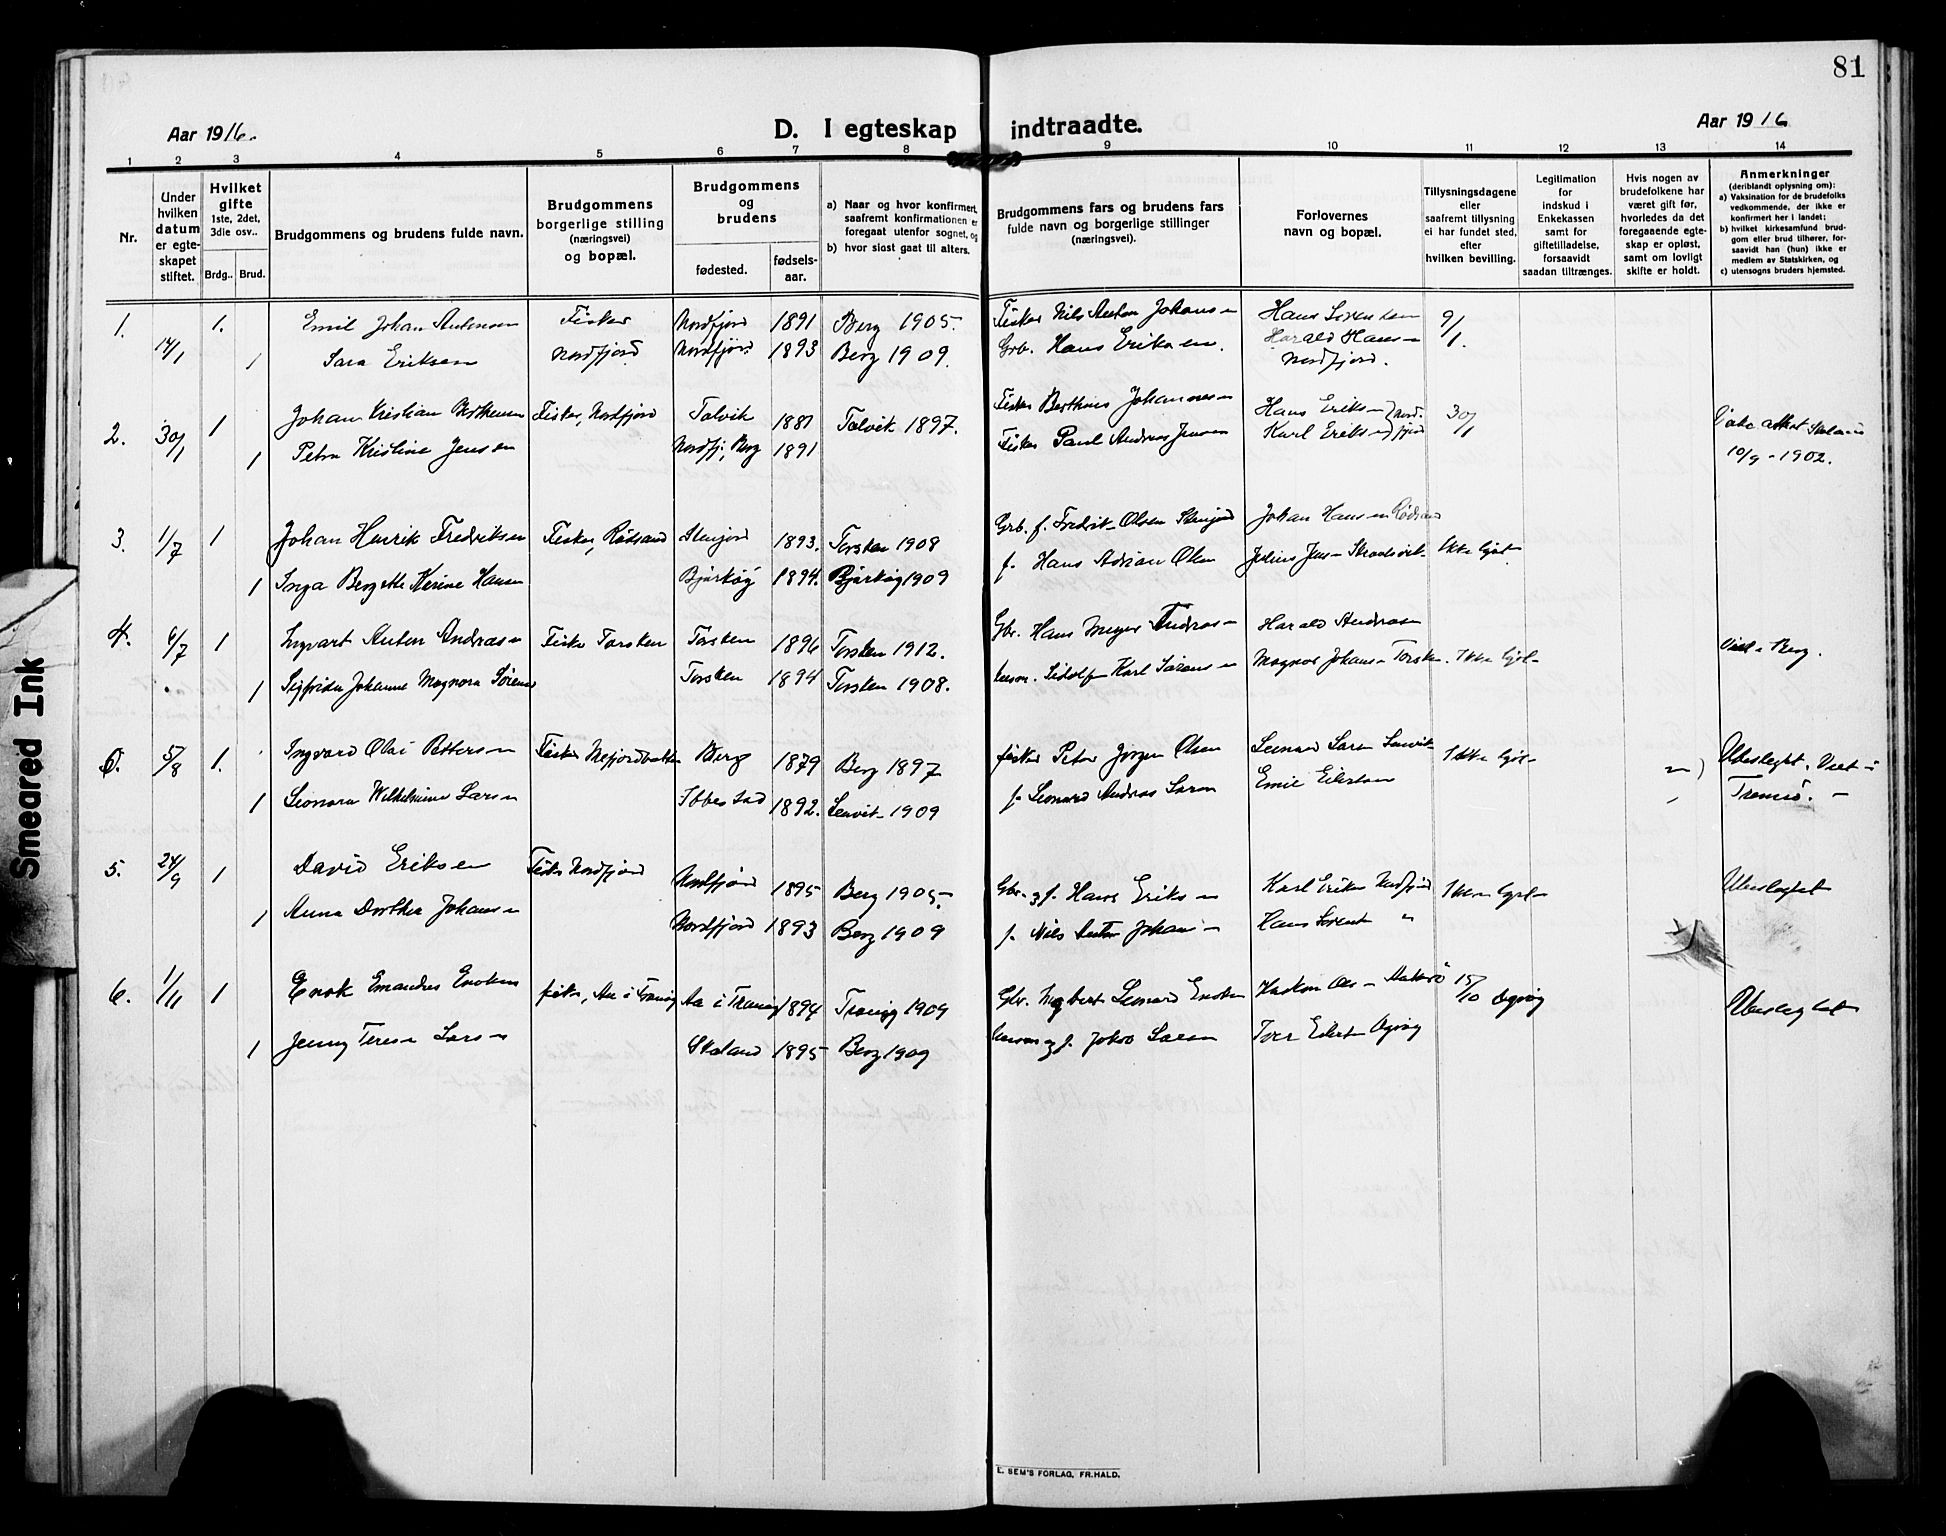 81
Aar 1916.
D. I egteskap indtraadte.
Aar 1916
1 2 3 4 5 6 7 8 9 10 11 12 13 14
Nr.
Under hvilken datum er egte-skapet stiftet.
Hvilket gifte
1ste, 2det, 3die osv..
Brdg.. Brud.
Brudgommens og brudens fulde navn.
Brudgommens borgerlige stilling (næringsvei) og bopæl.
Brudgommens og brudens
fødested. fødsels-aar.
a) Naar og hvor konfirmert, saafremt konfirmationen er foregaat utenfor sognet, og
b) hvor sidst gaat til alters.
Brudgommens fars og brudens fars fulde navn og borgerlige stillinger (næringsvei).
Forlovernes navn og bopæl.
Tillysningsdagene eller saafremt tillysning ei har fundet sted, efter hvilken bevilling.
Legitimation for indskud i Enkekassen samt for giftetilladelse, forsaavidt saadan tiltrænges.
Hvis nogen av brudefolkene har været gift før, hvorledes da det foregaaende egte-skap er opløst, samt om lovligt skifte er holdt.
Anmerkninger
(deriblandt oplysning om):
a) Vaksination for de brudefolks vedkommende, der ikke er konfirmert her i landet;
b) hvilket kirkesamfund brud-gom eller brud tilhører, for-saavidt han (hun) ikke er medlem av Statskirken, og
c) utensogns bruders hjemsted.
1. 14/1 1. Emil Johan Antonsen Fisker Nordfjord 1891 Berg 1905. Fisker Nils Anton Johansen Hans Sørensen 9/1.
1 Sara Eriksen Nordfjord Nordfjord 1893 Berg 1909. Grb. Hans Eriksen. Harald Hansen
Nordfjord.
2. 30/1 1 Johan Kristian Fisker, Nordfjord Talvik 1881 Talvik 1897. Fisker Berthins Johannesen Hans Eriksen 30/1
1 Petra Kristine Jensen Nordfj., Berg 1891 Fisker Paul Andreas Jensen Karl Eriksen Nordfjord
10/9 - 1902.
3. 1/7 1 Johan Henrik Fredriksen Fisker, Rödsand Stenjord 1893. Torsken 1908 Grb. f. Fredrik Olsen Stenjord Johan Hansen Rödsand
1 Inga Bergette Kerine Hansen Bjarköy 1894. Bjarköy 1909 f. Hans Adrian Olsen Julius Jensen Ikke lyst
4. 6/7 1 Ingvart Anton Andreasen Fisker Torsken Torsken 1896 Torsken 1912. Gbr. Hans Meyer Andreasen Harald Andreasen
1 Sigfrida Johanne Magnora Sörensen Torsken 1894 Torsken 1908. Karl Sörensen Magnus Johansen Torsken. Ikke lyst Viet i Berg.
5/8 1. Ingvard Olai Petersen Fisker Mefjordbotten Berg 1879 Berg 1897 fisker Peter Jørgen Olsen Ikke lyst Ubeslegtet. Viet i
1 Leonora Wilhelmine Larsen Ibbestad 1892. 1909 f. Leonard Andreas Larsen Emil Eilertsen Tromsö.
5. 24/9 1 David Eriksen Fisker Nordfjord Nordfjord 1895 Berg 1905. Gbr. og f. Hans Eriksen Karl Eriksen Nordfjord Ikke lyst Ubeslegtet
1 Anna Dorthea Johansen Nordfjord 1893 Berg 1909 f. Nils Anton Johansen Hans Sörensen "
6. 1/11 1 Enok Emandus Enoksen fisker, Aa i Tranöy Aa i Tranöy 1894 Tranöy 1909 Gbr. Ingbert Leonard Enoksen 15/10 Ubeslegtet
1 Jenny Teresie Larsen Skaland 1895 Berg 1909 og f. Jakob Larsen
E. SEM'S FORLAG, FR.HALD.
Smeared Ink